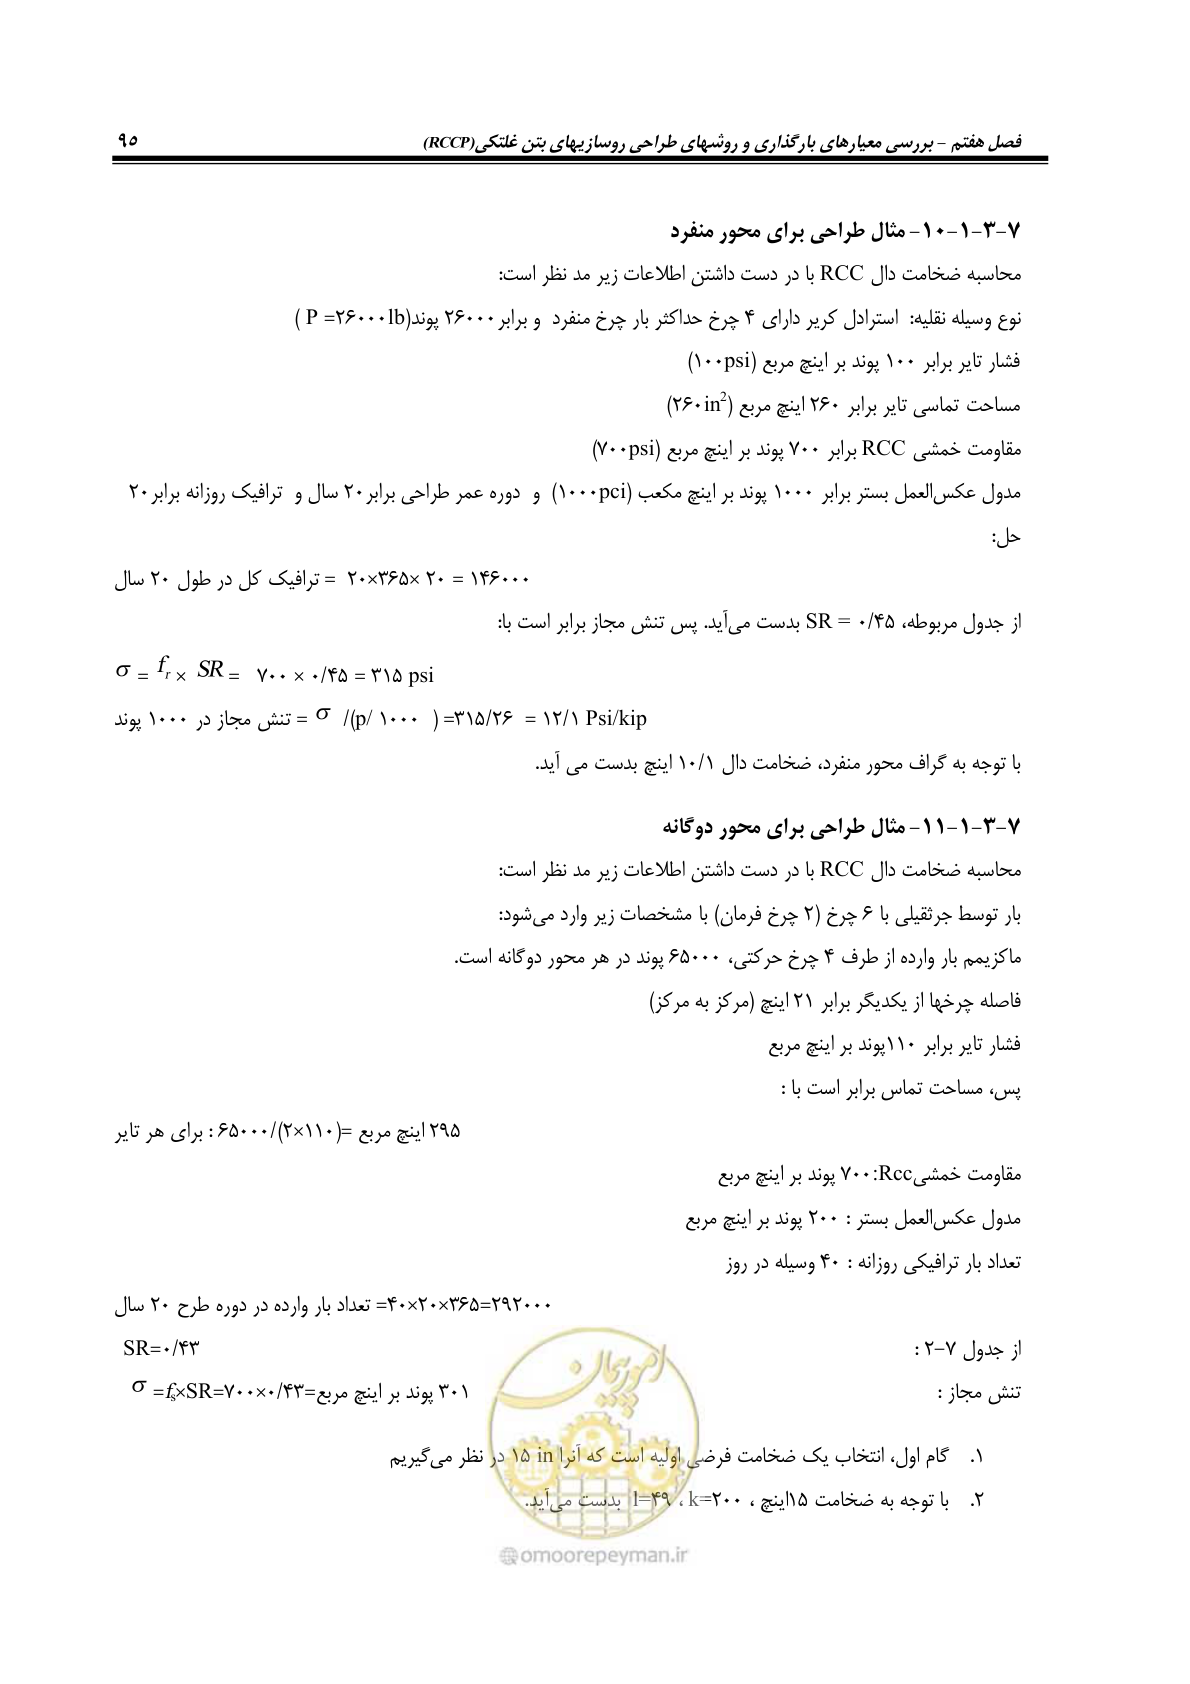 فصل هفتم – بررسی معیارهای بارگذاری و روشهای طراحی روسازیهای بتن غلتکی(RCCP) ۹۵
۷-۳-۱-۱۰- مثال طراحی برای محور منفرد
محاسبه ضخامت دال RCC با در دست داشتن اطلاعات زیر مد نظر است:
نوع وسیله نقلیه: استرادل کریر دارای ۴ چرخ حداکثر بار چرخ منفرد و برابر ۲۶۰۰۰ پوند(P =۲۶۰۰۰lb )
فشار تایر برابر ۱۰۰ پوند بر اینچ مربع (۱۰۰psi)
مساحت تماسی تایر برابر ۲۶۰ اینچ مربع (۲۶۰in²)
مقاومت خمشی RCC برابر ۷۰۰ پوند بر اینچ مربع (۷۰۰psi)
مدول عکس‌العمل بستر برابر ۱۰۰۰ پوند بر اینچ مکعب (۱۰۰۰pci) و دوره عمر طراحی برابر۲۰ سال و ترافیک روزانه برابر۲۰
حل:
ترافیک کل در طول ۲۰ سال = ۲۰×۳۶۵× ۲۰ = ۱۴۶۰۰۰
از جدول مربوطه، SR = ۰/۴۵ بدست می‌آید. پس تنش مجاز برابر است با:
σ = fr × SR = ۷۰۰ × ۰/۴۵ = ۳۱۵ psi
تنش مجاز در ۱۰۰۰ پوند = σ /(p/ ۱۰۰۰ ) =۳۱۵/۲۶ = ۱۲/۱ Psi/kip
با توجه به گراف محور منفرد، ضخامت دال ۱۰/۱ اینچ بدست می آید.
۷-۳-۱-۱۱- مثال طراحی برای محور دوگانه
محاسبه ضخامت دال RCC با در دست داشتن اطلاعات زیر مد نظر است:
بار توسط جرثقیلی با ۶ چرخ (۲ چرخ فرمان) با مشخصات زیر وارد می‌شود:
ماکزیمم بار وارده از طرف ۴ چرخ حرکتی، ۶۵۰۰۰ پوند در هر محور دوگانه است.
فاصله چرخها از یکدیگر برابر ۲۱ اینچ (مرکز به مرکز)
فشار تایر برابر ۱۱۰پوند بر اینچ مربع
پس، مساحت تماس برابر است با :
برای هر تایر : ۶۵۰۰۰/(۲×۱۱۰)= ۲۹۵ اینچ مربع
مقاومت خمشیRcc: ۷۰۰ پوند بر اینچ مربع
مدول عکس‌العمل بستر : ۲۰۰ پوند بر اینچ مربع
تعداد بار ترافیکی روزانه : ۴۰ وسیله در روز
تعداد بار وارده در دوره طرح ۲۰ سال =۴۰×۲۰×۳۶۵=۲۹۲۰۰۰
از جدول ۷-۲ : SR=۰/۴۳
تنش مجاز : σ =fs×SR=۷۰۰×۰/۴۳=۳۰۱ پوند بر اینچ مربع
۱. گام اول، انتخاب یک ضخامت فرضی اولیه است که آنرا ۱۵ in در نظر می‌گیریم
۲. با توجه به ضخامت ۱۵اینچ ، k=۲۰۰ ، l=۴۹ بدست می‌آید.
امور پیمان
@omoorepeyman.ir